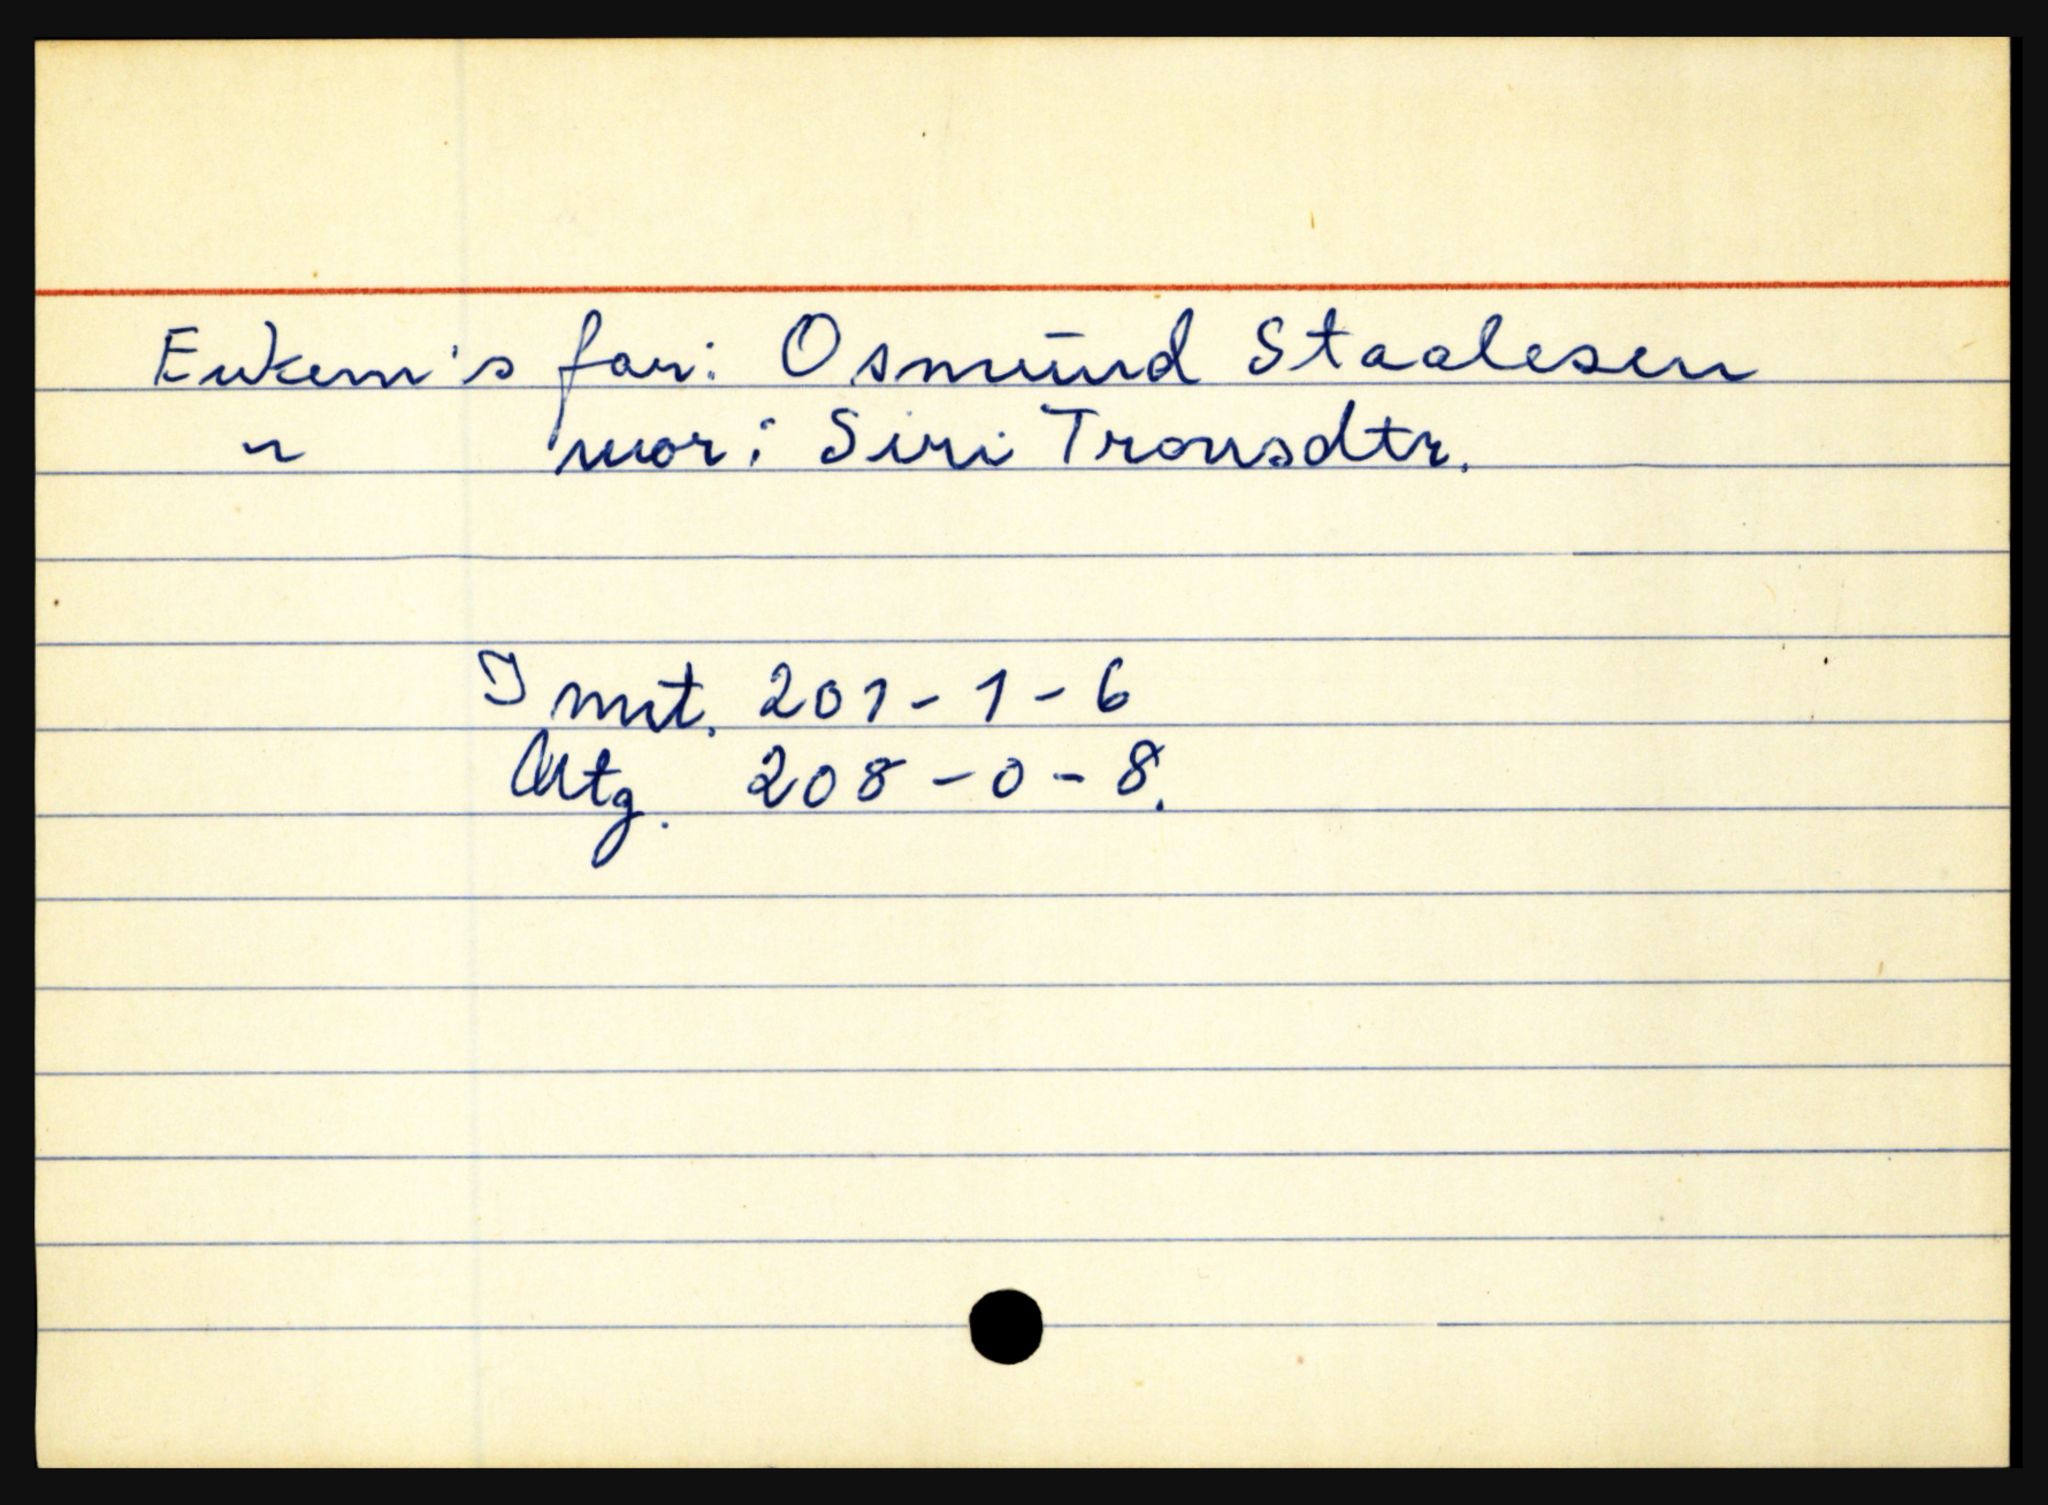 Enkem's far: Osmund Staalesen
" mor: Siri Tronsdtr.
Innt. 201-1-6
Utg. 208-0-8.